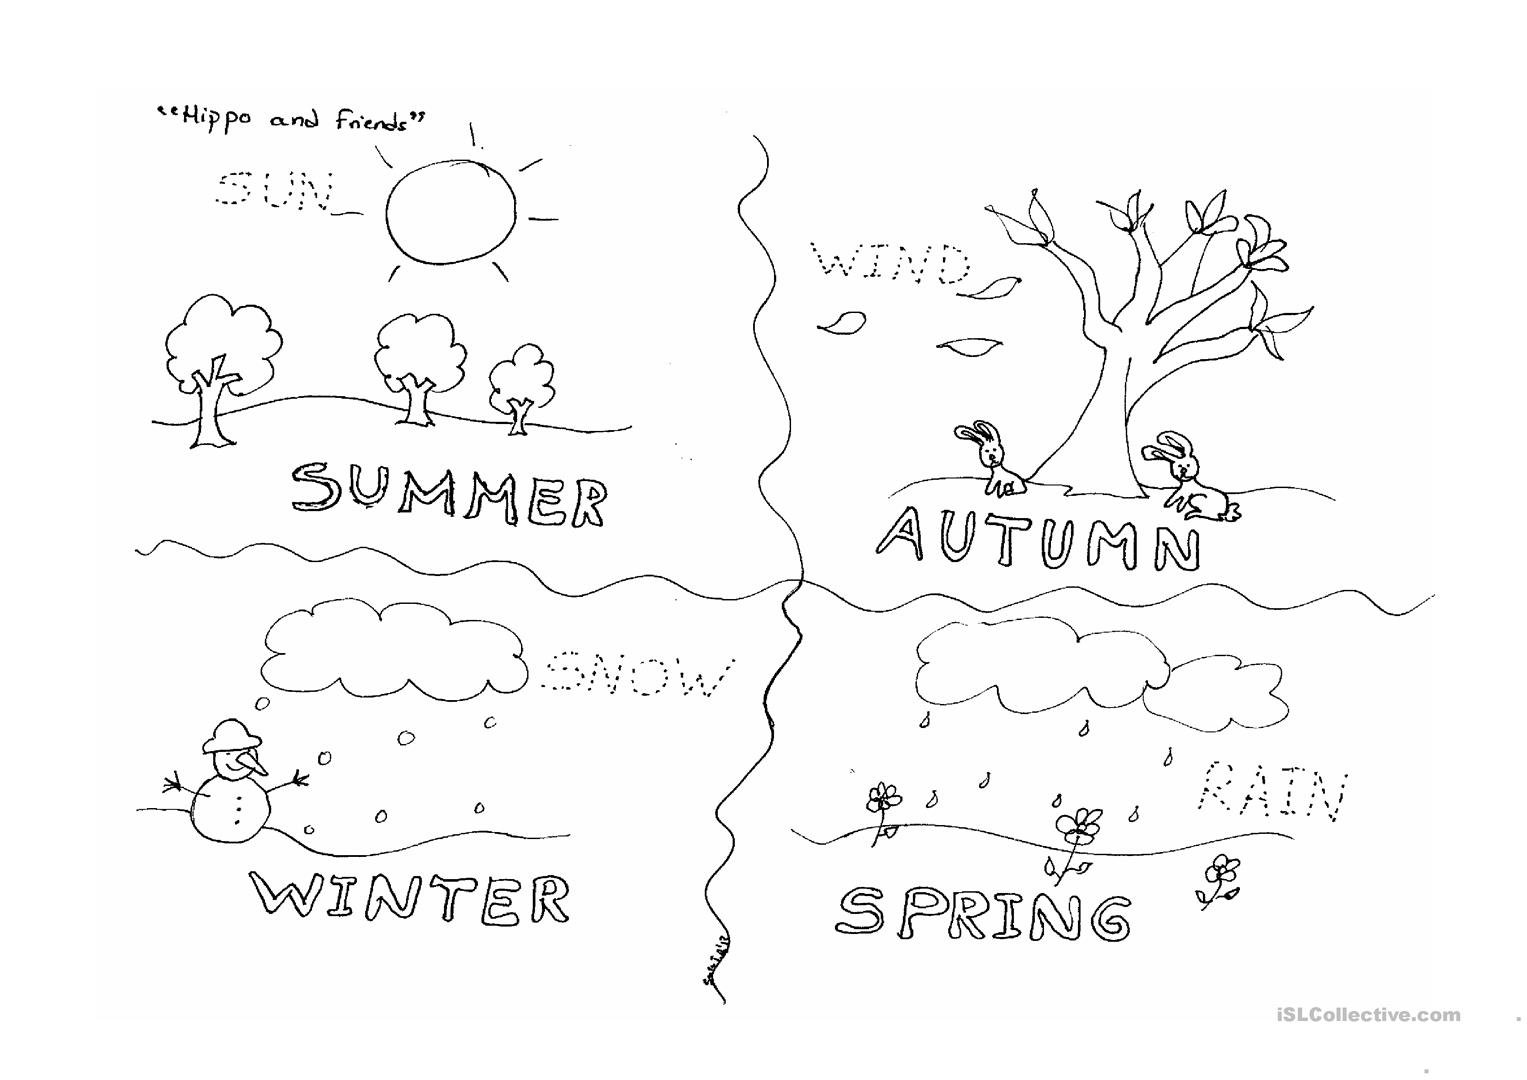 “Hippo and Friends”
SUN
SUMMER
WIND
AUTUMN
SNOW
WINTER
RAIN
SPRING
iSLCollective.com